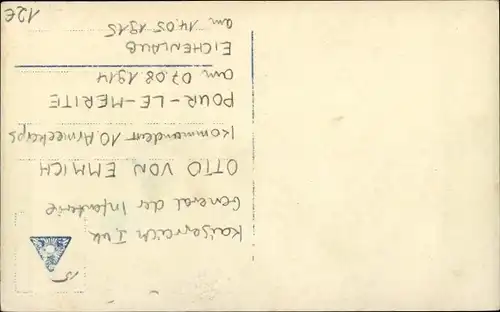 Kaiserreich I.WK
General der Infanterie
OTTO VON EMMICH
Kommandeur 10. Armeekorps
POUR-LE-MERITE
am 07.08.1914
EICHENLAUB
am 14.05.1915
12€
15